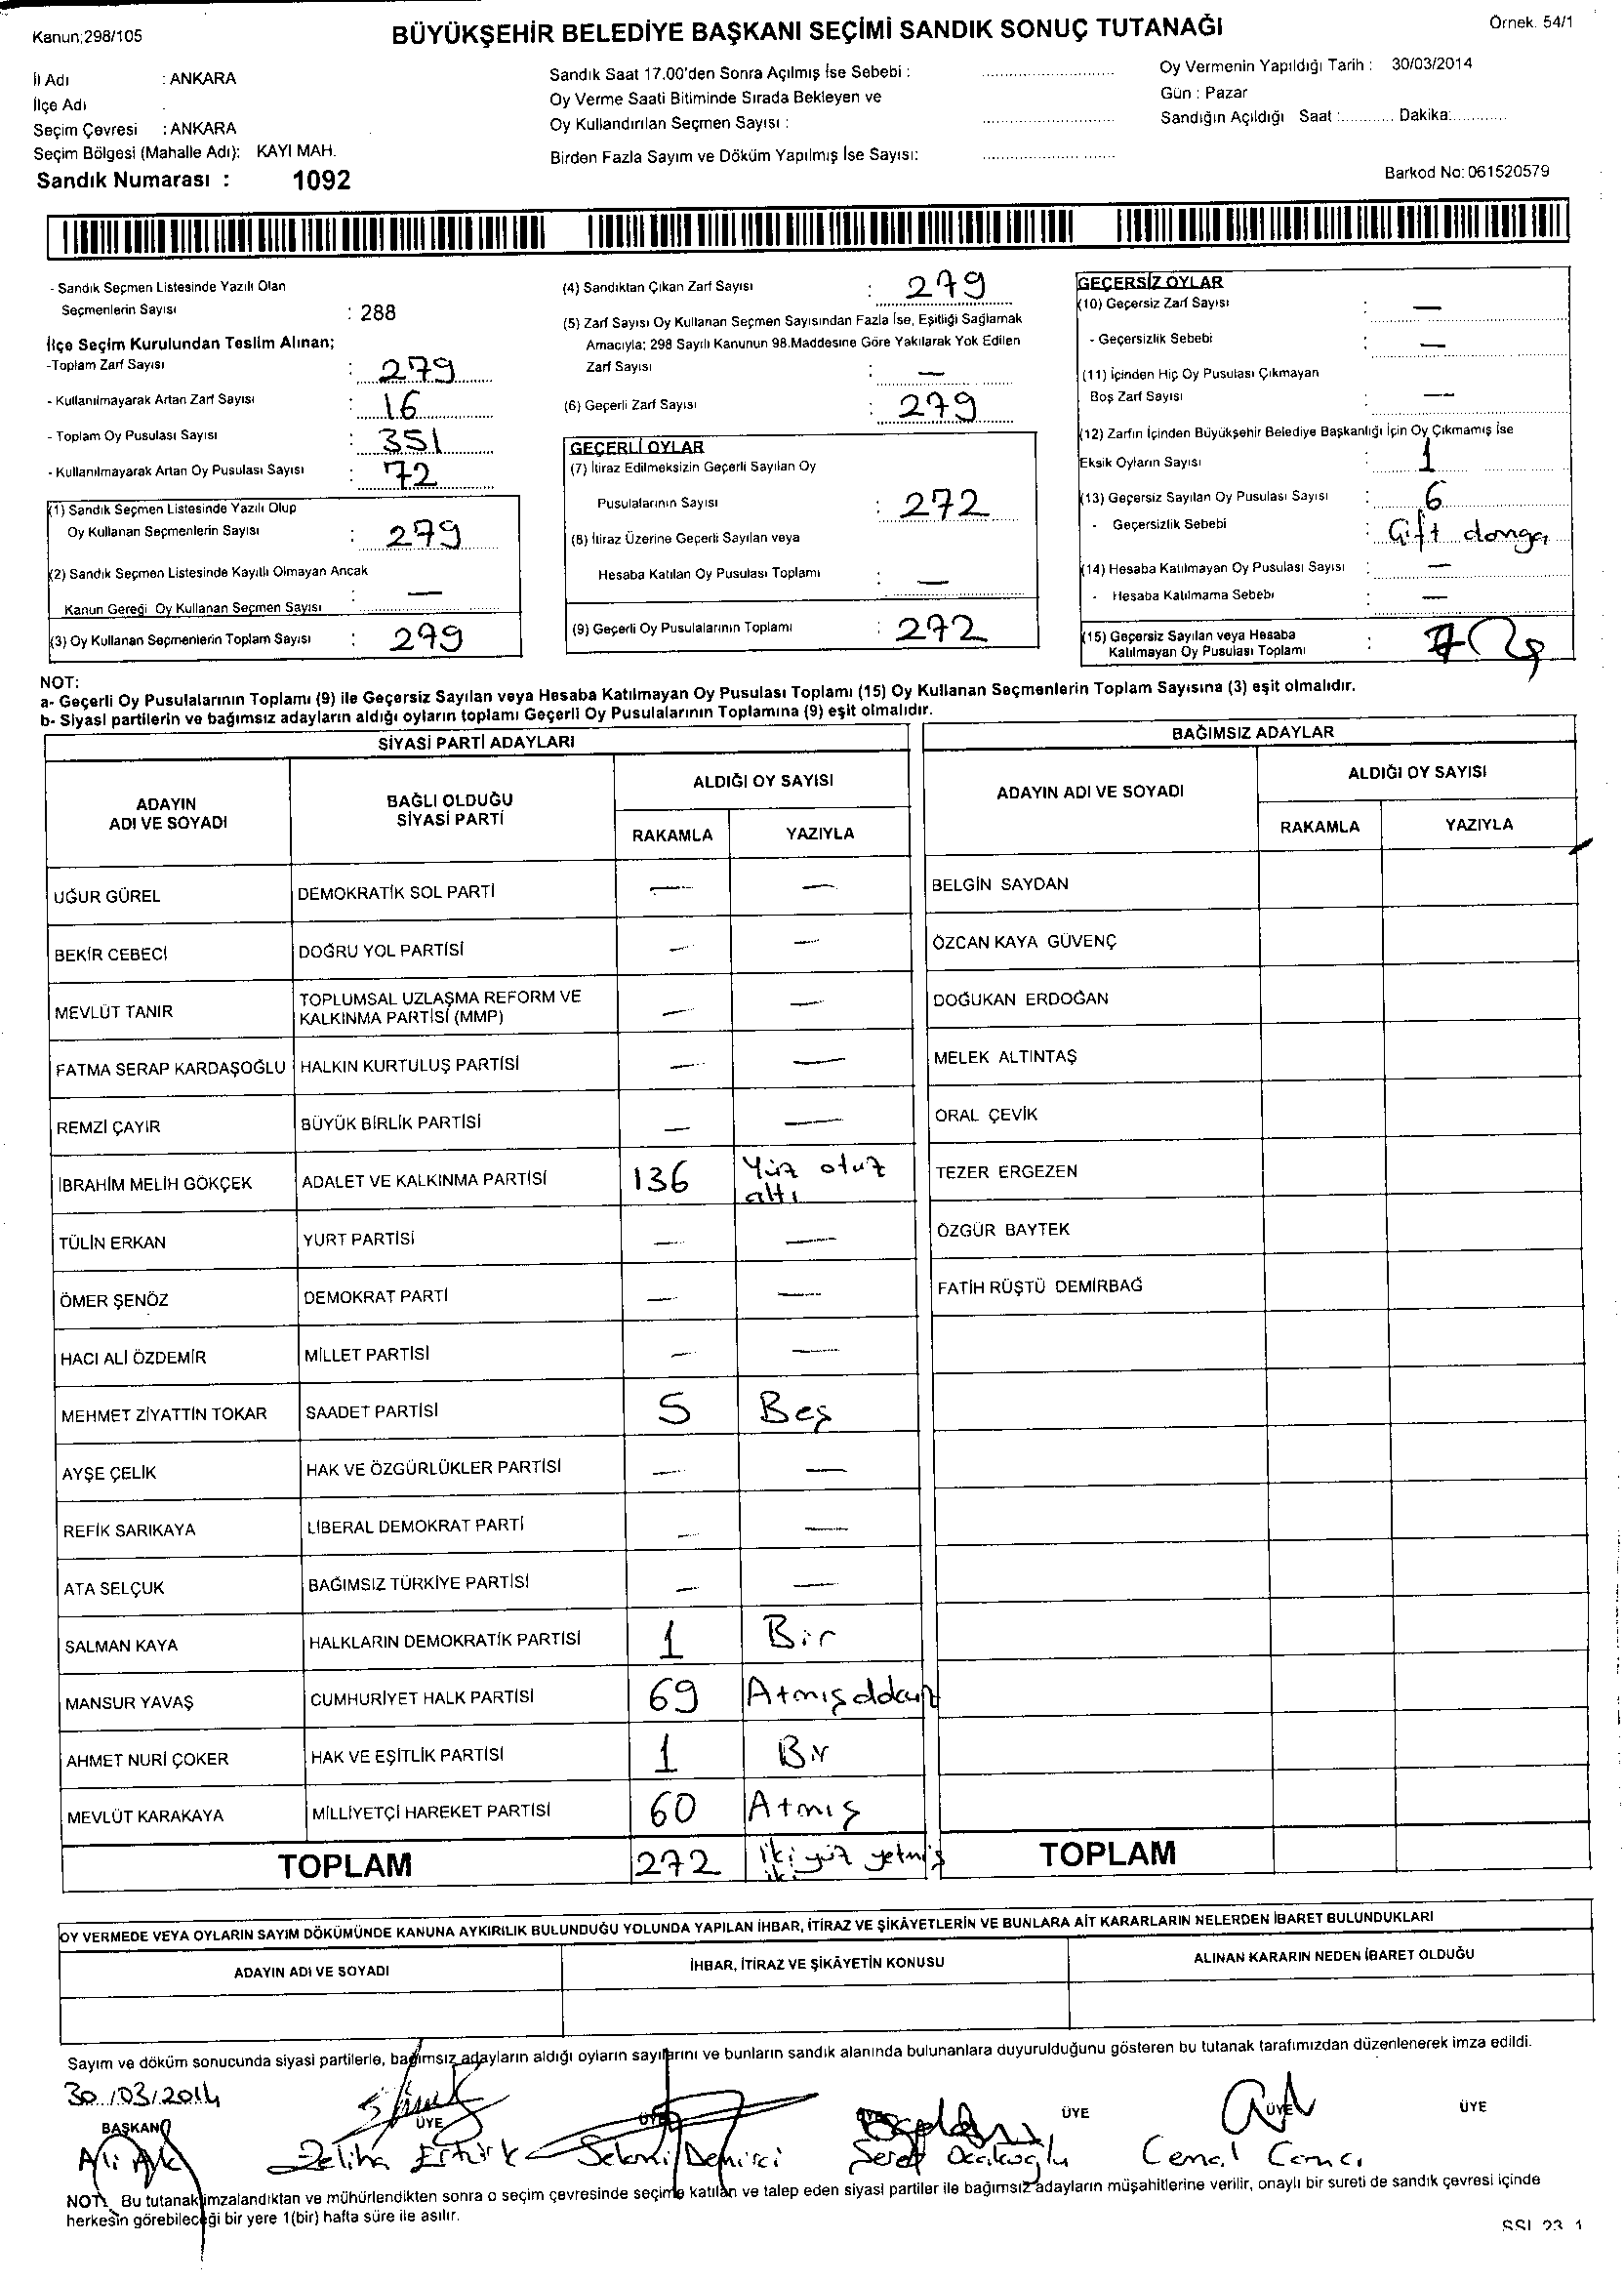 Kanun;298/105
BÜYÜKŞEHİR BELEDİYE BAŞKANI SEÇİMİ SANDIK SONUÇ TUTANAĞI
Örnek. 54/1
İl Adı : ANKARA
İlçe Adı
Seçim Çevresi : ANKARA
Seçim Bölgesi (Mahalle Adı): KAYI MAH.
Sandık Numarası : 1092
Sandık Saat 17.00'den Sonra Açılmış İse Sebebi :
Oy Verme Saati Bitiminde Sırada Bekleyen ve
Oy Kullandırılan Seçmen Sayısı :
Birden Fazla Sayım ve Döküm Yapılmış İse Sayısı:
Oy Vermenin Yapıldığı Tarih : 30/03/2014
Gün : Pazar
Sandığın Açıldığı Saat :............ Dakika:............
Barkod No: 061520579
- Sandık Seçmen Listesinde Yazılı Olan
Seçmenlerin Sayısı : 288
İlçe Seçim Kurulundan Teslim Alınan;
-Toplam Zarf Sayısı : 279
- Kullanılmayarak Artan Zarf Sayısı : 16
- Toplam Oy Pusulası Sayısı : 351
- Kullanılmayarak Artan Oy Pusulası Sayısı : 72
(1) Sandık Seçmen Listesinde Yazılı Olup
Oy Kullanan Seçmenlerin Sayısı : 279
(2) Sandık Seçmen Listesinde Kayıtlı Olmayan Ancak
Kanun Gereği Oy Kullanan Seçmen Sayısı : —
(3) Oy Kullanan Seçmenlerin Toplam Sayısı : 279
(4) Sandıktan Çıkan Zarf Sayısı : 279
(5) Zarf Sayısı Oy Kullanan Seçmen Sayısından Fazla İse, Eşitliği Sağlamak
Amacıyla; 298 Sayılı Kanunun 98.Maddesine Göre Yakılarak Yok Edilen
Zarf Sayısı : —
(6) Geçerli Zarf Sayısı : 279
GEÇERLİ OYLAR
(7) İtiraz Edilmeksizin Geçerli Sayılan Oy
Pusulalarının Sayısı : 272
(8) İtiraz Üzerine Geçerli Sayılan veya
Hesaba Katılan Oy Pusulası Toplamı : —
(9) Geçerli Oy Pusulalarının Toplamı : 272
GEÇERSİZ OYLAR
(10) Geçersiz Zarf Sayısı : —
- Geçersizlik Sebebi : —
(11) İçinden Hiç Oy Pusulası Çıkmayan
Boş Zarf Sayısı : —
(12) Zarfın İçinden Büyükşehir Belediye Başkanlığı İçin Oy Çıkmamış İse
Eksik Oyların Sayısı : 1
(13) Geçersiz Sayılan Oy Pusulası Sayısı : 6
- Geçersizlik Sebebi : Çift damga
(14) Hesaba Katılmayan Oy Pusulası Sayısı : —
- Hesaba Katılmama Sebebi : —
(15) Geçersiz Sayılan veya Hesaba
Katılmayan Oy Pusulası Toplamı : 7
NOT:
a- Geçerli Oy Pusulalarının Toplamı (9) ile Geçersiz Sayılan veya Hesaba Katılmayan Oy Pusulası Toplamı (15) Oy Kullanan Seçmenlerin Toplam Sayısına (3) eşit olmalıdır.
b- Siyasi partilerin ve bağımsız adayların aldığı oyların toplamı Geçerli Oy Pusulalarının Toplamına (9) eşit olmalıdır.
SİYASİ PARTİ ADAYLARI
ADAYIN ADI VE SOYADI
BAĞLI OLDUĞU SİYASİ PARTİ
ALDIĞI OY SAYISI
RAKAMLA YAZIYLA
UĞUR GÜREL DEMOKRATİK SOL PARTİ — —
BEKİR CEBECİ DOĞRU YOL PARTİSİ — —
MEVLÜT TANIR TOPLUMSAL UZLAŞMA REFORM VE KALKINMA PARTİSİ (MMP) — —
FATMA SERAP KARDAŞOĞLU HALKIN KURTULUŞ PARTİSİ — —
REMZİ ÇAYIR BÜYÜK BİRLİK PARTİSİ — —
İBRAHİM MELİH GÖKÇEK ADALET VE KALKINMA PARTİSİ 136 Yüz otuz altı
TÜLİN ERKAN YURT PARTİSİ — —
ÖMER ŞENÖZ DEMOKRAT PARTİ — —
HACI ALİ ÖZDEMİR MİLLET PARTİSİ — —
MEHMET ZİYATTİN TOKAR SAADET PARTİSİ 5 Beş
AYŞE ÇELİK HAK VE ÖZGÜRLÜKLER PARTİSİ — —
REFİK SARIKAYA LİBERAL DEMOKRAT PARTİ — —
ATA SELÇUK BAĞIMSIZ TÜRKİYE PARTİSİ — —
SALMAN KAYA HALKLARIN DEMOKRATİK PARTİSİ 1 Bir
MANSUR YAVAŞ CUMHURİYET HALK PARTİSİ 69 Atmış
AHMET NURİ ÇOKER HAK VE EŞİTLİK PARTİSİ 1 Bir
MEVLÜT KARAKAYA MİLLİYETÇİ HAREKET PARTİSİ 60 Atmış
TOPLAM 272 iki yüz yetmiş iki
BAĞIMSIZ ADAYLAR
ADAYIN ADI VE SOYADI
ALDIĞI OY SAYISI
RAKAMLA YAZIYLA
BELGİN SAYDAN
ÖZCAN KAYA GÜVENÇ
DOĞUKAN ERDOĞAN
MELEK ALTINTAŞ
ORAL ÇEVİK
TEZER ERGEZEN
ÖZGÜR BAYTEK
FATİH RÜŞTÜ DEMİRBAĞ
TOPLAM
OY VERMEDE VEYA OYLARIN SAYIM DÖKÜMÜNDE KANUNA AYKIRILIK BULUNDUĞU YOLUNDA YAPILAN İHBAR, İTİRAZ VE ŞİKÂYETLERİN VE BUNLARA AİT KARARLARIN NELERDEN İBARET BULUNDUKLARI
ADAYIN ADI VE SOYADI İHBAR, İTİRAZ VE ŞİKÂYETİN KONUSU ALINAN KARARIN NEDEN İBARET OLDUĞU
Sayım ve döküm sonucunda siyasi partilerle, bağımsız adayların aldığı oyların sayılarını ve bunların sandık alanında bulunanlara duyurulduğunu gösteren bu tutanak tarafımızdan düzenlenerek imza edildi.
30/03/2014
BAŞKAN ÜYE ÜYE ÜYE ÜYE ÜYE ÜYE
Ali Zeliha Selami Demirci Cemal
NOT: Bu tutanak imzalandıktan ve mühürlendikten sonra o seçim çevresinde seçime katılan ve talep eden siyasi partiler ile bağımsız adayların müşahitlerine verilir, onaylı bir sureti de sandık çevresi içinde
herkesin görebileceği bir yere 1(bir) hafta süre ile asılır.